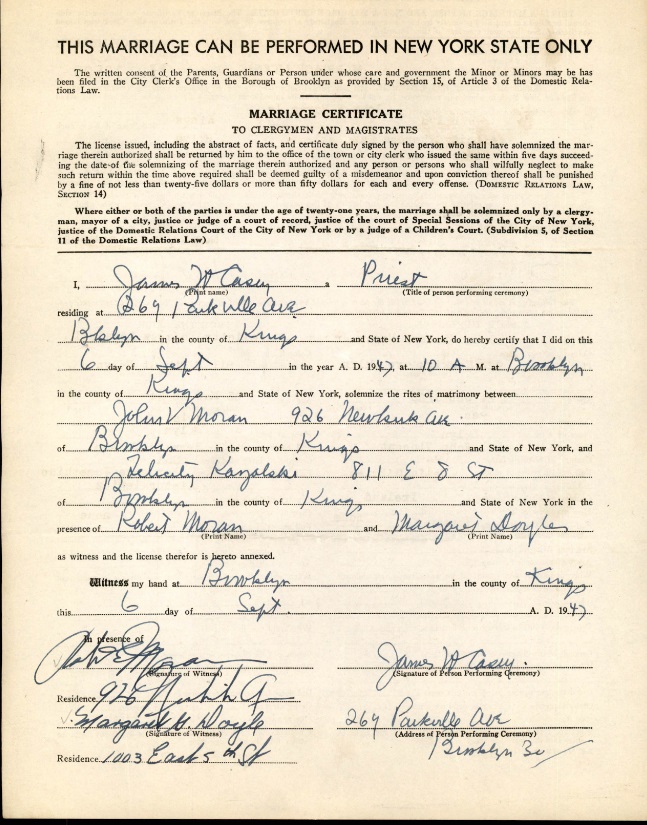 THIS MARRIAGE CAN BE PERFORMED IN NEW YORK STATE ONLY
The written consent of the Parents, Guardians or Person under whose care and government the Minor or Minors may be has
been filed in the City Clerk's Office in the Borough of Brooklyn as provided by Section 15, of Article 3 of the Domestic Rela-
tions Law.
MARRIAGE CERTIFICATE
TO CLERGYMEN AND MAGISTRATES
The license issued, including the abstract of facts, and certificate duly signed by the person who shall have solemnized the mar-
riage therein authorized shall be returned by him to the office of the town or city clerk who issued the same within five days succeed-
ing the date of the solemnizing of the marriage therein authorized and any person or persons who shall wilfully neglect to make
such return within the time above required shall be deemed guilty of a misdemeanor and upon conviction thereof shall be punished
by a fine of not less than twenty-five dollars or more than fifty dollars for each and every offense. (DOMESTIC RELATIONS LAW,
SECTION 14)
Where either or both of the parties is under the age of twenty-one years, the marriage shall be solemnized only by a clergy-
man, mayor of a city, justice or judge of a court of record, justice of the court of Special Sessions of the City of New York,
justice of the Domestic Relations Court of the City of New York or by a judge of a Children's Court. (Subdivision 5, of Section
11 of the Domestic Relations Law)
I, James W Casey a Priest
(Print name) (Title of person performing ceremony)
residing at 264 Parkville Ave
Bklyn in the county of Kings and State of New York, do hereby certify that I did on this
6 day of Sept in the year A. D. 1947, at 10 A M. at Brooklyn
in the county of Kings and State of New York, solemnize the rites of matrimony between
John V Moran 926 Newkirk Ave.
of Brooklyn in the county of Kings and State of New York, and
Felicity Kanzalski 811 E 8 ST
of Brooklyn in the county of Kings and State of New York in the
presence of Robert Moran and Margaret Doyle
(Print Name) (Print Name)
as witness and the license therefor is hereto annexed.
Witness my hand at Brooklyn in the county of Kings
this 6 day of Sept. A. D. 1947
In presence of
Moran James W Casey.
(Signature of Witness) (Signature of Person Performing Ceremony)
Residence 926
Margaret H. Doyle 264 Parkville Ave
(Signature of Witness) (Address of Person Performing Ceremony)
Residence 1003 East 5th St Brooklyn 30